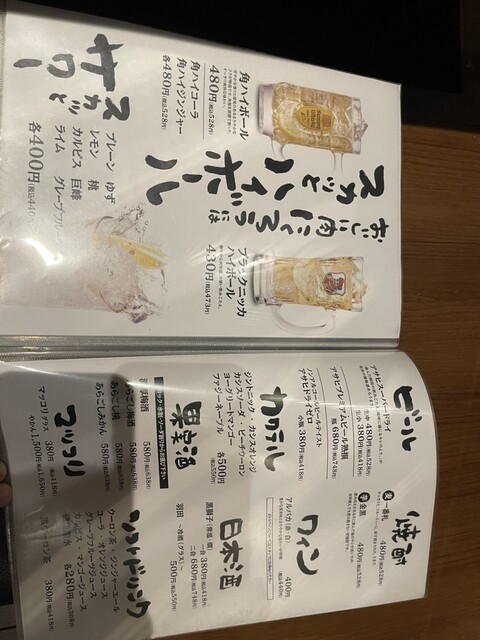 おいしい肉にくろうには
スカッとハイボール
角ハイボール
480円(税込528円)
角ハイコーラ
角ハイジンジャー
各480円(税込528円)
ブラックニッカ
ハイボール
430円(税込473円)
スカッと
サワー
プレーン ゆず
レモン 桃
カルピス 巨峰
ライム グレープフルー
各400円(税込440
ビール
アサヒスーパードライ
生中 480円(税込528円)
生小 380円(税込418円)
アサヒプレミアムビール熟撰
瓶 680円(税込748円)
ノンアルコールビールテイスト
アサヒドライゼロ
小瓶 380円(税込418円)
焼酎
麦 一番札
480円(税込528円)
芋 金黒
480円(税込528円)
カクテル
ジントニック・カシスオレンジ
カシスソーダ・ピーチウーロン
ヨーグリートマンゴー
ファジーネーブル
各500円
(税込550円)
ワイン
アルパカ(赤・白)
400円
(税込440円)
果実酒
ロック・水割・ソーダ割りからお選び下さい
梅酒 580円(税込638円)
あらごし梅酒 580円(税込638円)
あらごし桃 580円(税込638円)
あらごしみかん 580円(税込638円)
日本酒
黒獅子(常温・燗)
一合 380円(税込418円)
二合 680円(税込748円)
羽田 ~冷酒(グラス)
500円(税込550円)
マッコリ
マッコリ グラス 380円(税込418円)
やかん 1,500円(税込1,650円)
ソフトドリンク
ウーロン茶・ジンジャーエール
コーラ・オレンジジュース
グレープフルーツジュース
カルピス・マンゴージュース
各280円(税込308円)
黒ウーロン茶 380円(税込418円)